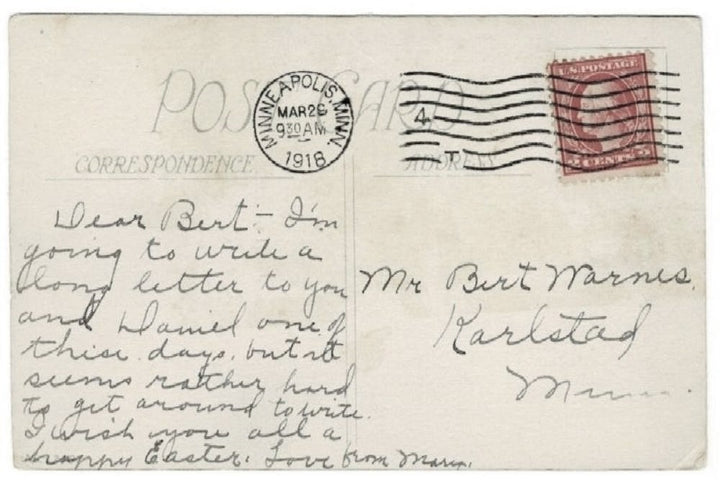 POST CARD
CORRESPONDENCE
ADDRESS
MINNEAPOLIS, MINN.
MAR 26
930 AM
1918
4
T
U.S. POSTAGE
CENTS
Dear Bert:- I'm
going to write a
long letter to you
and Daniel one of
these days, but it
seems rather hard
to get around to write.
I wish you all a
happy Easter. Love from
Mr Bert Warnes.
Karlstad
Minn.